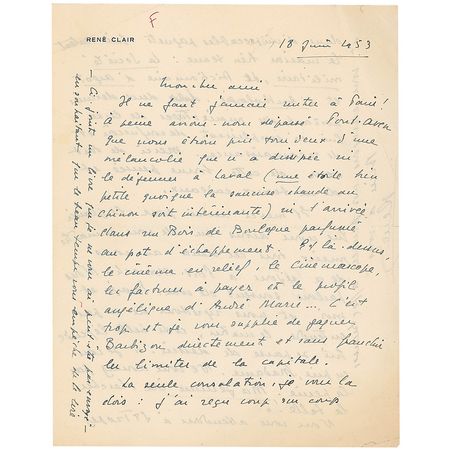 F
RENÉ CLAIR
18 Juin 1953
Mon cher ami
Il ne faut jamais rentrer à Paris !
À peine avions-nous dépassé Pont-Aven
que nous étions pris tous deux d'une
mélancolie que n'a dissipée ni
le déjeuner à Laval (une étoile bien
petite quoique la saucisse chaude au
chinon soit intéressante) ni l'arrivée
dans un Bois de Boulogne parfumé
au pot d'échappement. Et là-dessus,
le cinéma en relief, le cinémascope,
les factures à payer et le profil
angélique d'André Marie... C'est
trop et je vous supplie de gagner
Barbizon directement et sans franchir
les limites de la capitale.
La seule consolation, je vous la
dois : j'ai reçu coup sur coup
— Ci-joint un livre que je ne vous ai peut-être pas envoyé —
en souhaitant que le beau temps vous empêche de le lire